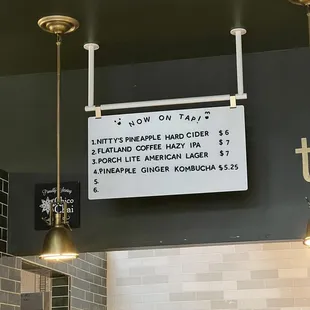 NOW ON TAP!
1. NITTY'S PINEAPPLE HARD CIDER $6
2. FLATLAND COFFEE HAZY IPA $7
3. PORCH LITE AMERICAN LAGER $7
4. PINEAPPLE GINGER KOMBUCHA $5.25
5.
6.
Chai
t